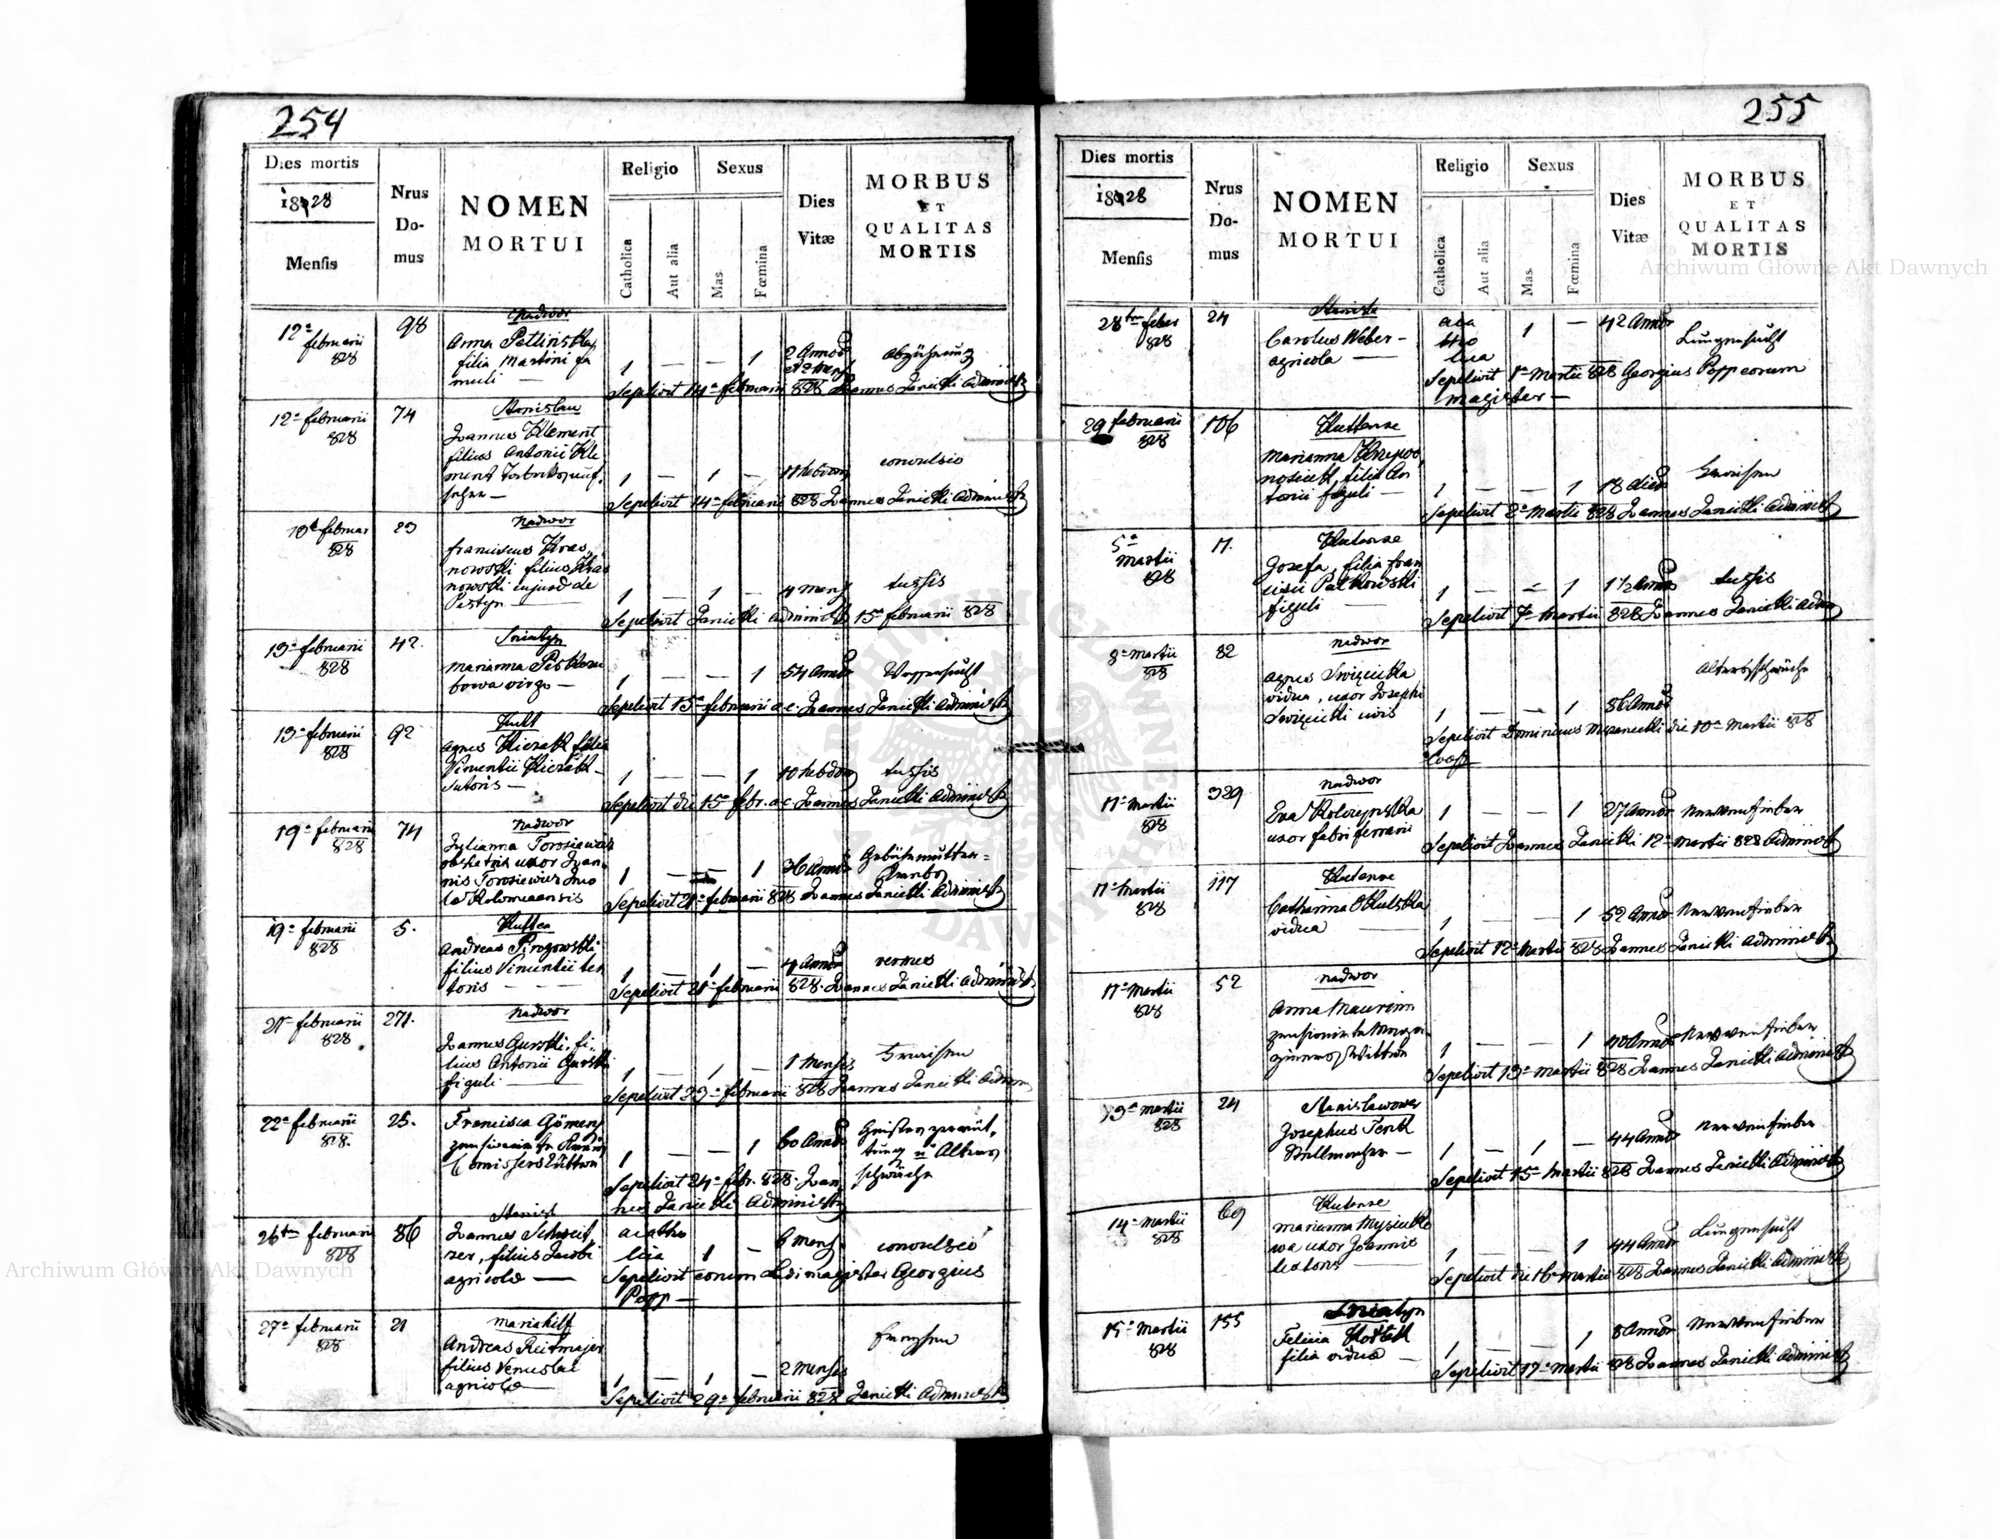 254
Dies mortis
1828
Mensis
Nrus
Do-
mus
NOMEN
MORTUI
Religio
Catholica
Aut alia
Sexus
Mas.
Fœmina
Dies
Vitæ
MORBUS
ET
QUALITAS
MORTIS
12a februarii
828
98
Nadwor
Anna Petlinska
filia Martini fa
muli —
1 — — 1
2 Annor
Abzührung
Sepelivit 14a februarii 828 Joannes Janicki Administr
12a februarii
828
74
Stanislau
Joannes Klement
filius Antonii Kle
ment
1 — 1 —
11 hebdom
convulsio
Sepelivit 14a februarii 828 Joannes Janicki Administr
13a februar
828
23
Nadwor
franciscus Kras
nowski filius Kras
nowski cujusd de
Pistyn —
1 — 1 —
4 mens
tussis
Sepelivit Janicki Administr 15a februarii 828
13a februarii
828
42.
Sniatyn
Marianna
bowa virgo —
1 — — 1
54 Annor
Wassersucht
Sepelivit 15a februarii a.c. Joannes Janicki Administr
13a februarii
828
92
Kutt
Agnes Kierzek filia
Vincentii Kierzek
Sutoris —
1 — — 1
10 hebdom
tussis
Sepelivit die 15a febr. a.c. Joannes Janicki Administr
19a februarii
828
74
Nadwor
Julianna Torosiewicz
obstetrix uxor Joan
nis Torosiewicz
Kolomeaensis
1 — — 1
36 Annor
Gebährmutter=
Sepelivit 21a februarii 828 Joannes Janicki Administr
19a februarii
828
5.
Kuttea
Andreas Pirogowski
filius Vincentii tex
toris — — —
1 — 1 —
4 Annor
vermes
Sepelivit 21a februarii 828. Joannes Janicki Administr
21a februarii
828
271.
Nadwor
Joannes Gurski, fi
lius Antonii Gurski
figuli —
1 — 1 —
1 Mensis
Sepelivit 23a februarii 828 Joannes Janicki Admin
22a februarii
828.
25.
Francisca
1 — — 1
60 Annor
u Alters
schwäche
Sepelivit 24a febr. 828. Joan
nes Janicki Administr
26ten februarii
828
86
Stanisl
Joannes Schweit
zer, filius Jacobi
agricolæ —
acatho
lica 1 —
6 mens.
convulsio
Sepelivit eorum Ludimagister Georgius
Popp —
27a februarii
828
21
Mariahilf
Andreas Reitmajer
filius Venceslai
agricolæ —
1 — 1 —
2 Menses
Sepelivit 29a februarii 828 Janicki Administr
255
Dies mortis
1828
Mensis
Nrus
Do-
mus
NOMEN
MORTUI
Religio
Catholica
Aut alia
Sexus
Mas.
Fœmina
Dies
Vitæ
MORBUS
ET
QUALITAS
MORTIS
28ten feber
828
24
Carolus Weber —
agricola —
aca
tho
lica
1 —
42 Annor
Lungensucht
Sepelivit 1a Martii 828 Georgius Popp eorum
magister —
29 februarii
828
106
Kuttense
Marianna
filia An
tonii figuli —
1 — — 1
18 dies
Sepelivit 2a Martii 828 Joannes Janicki Administr
5a
Martii
828
11.
Kutense
Josefa, filia fran
cisci Palkowski
figuli —
1 — — 1
1 1/2 Annor
tussis
Sepelivit 7a Martii 828 Joannes Janicki Admin
8a Martii
828
82
Nadwor
Agnes Swięcicka
vidua, uxor Josephi
Swięcicki civis
1 — — 1
86 Annor
Altersschwäche
Sepelivit Dominicus die 10a Martii 828
Coop
11a Martii
828
329
Nadwor
Eva
uxor fabri ferrarii
1 — — 1
27 Annor
Nervenfieber
Sepelivit Joannes Janicki 12a Martii 828 Administr
11a Martii
828
117
Kutense
Catharina Skulska
vidua —
1 — — 1
52 Annor
Nervenfieber
Sepelivit 12a Martii 828 Joannes Janicki Administr
11a Martii
828
52
Nadwor
Anna
1 — — 1
40 Annor
Nervenfieber
Sepelivit 13a Martii 828 Joannes Janicki Administr
13a Martii
828
24
Stanislawower
Josephus
1 — 1 —
44 Annor
Nervenfieber
Sepelivit 15a Martii 828 Joannes Janicki Administr
14a Martii
828
69
Kutense
Marianna
wa uxor Joannis
1 — — 1
44 Annor
Lungensucht
Sepelivit die 16a Martii 828 Joannes Janicki Administr
15a Martii
828
155
Sniatyn
Felicia
filia vidua —
1 — — 1
8 Annor
Nervenfieber
Sepelivit 17a Martii 828 Joannes Janicki Administr
Archiwum Główne Akt Dawnych
Archiwum Główne Akt Dawnych
ARCHIWUM GŁÓWNE AKT DAWNYCH